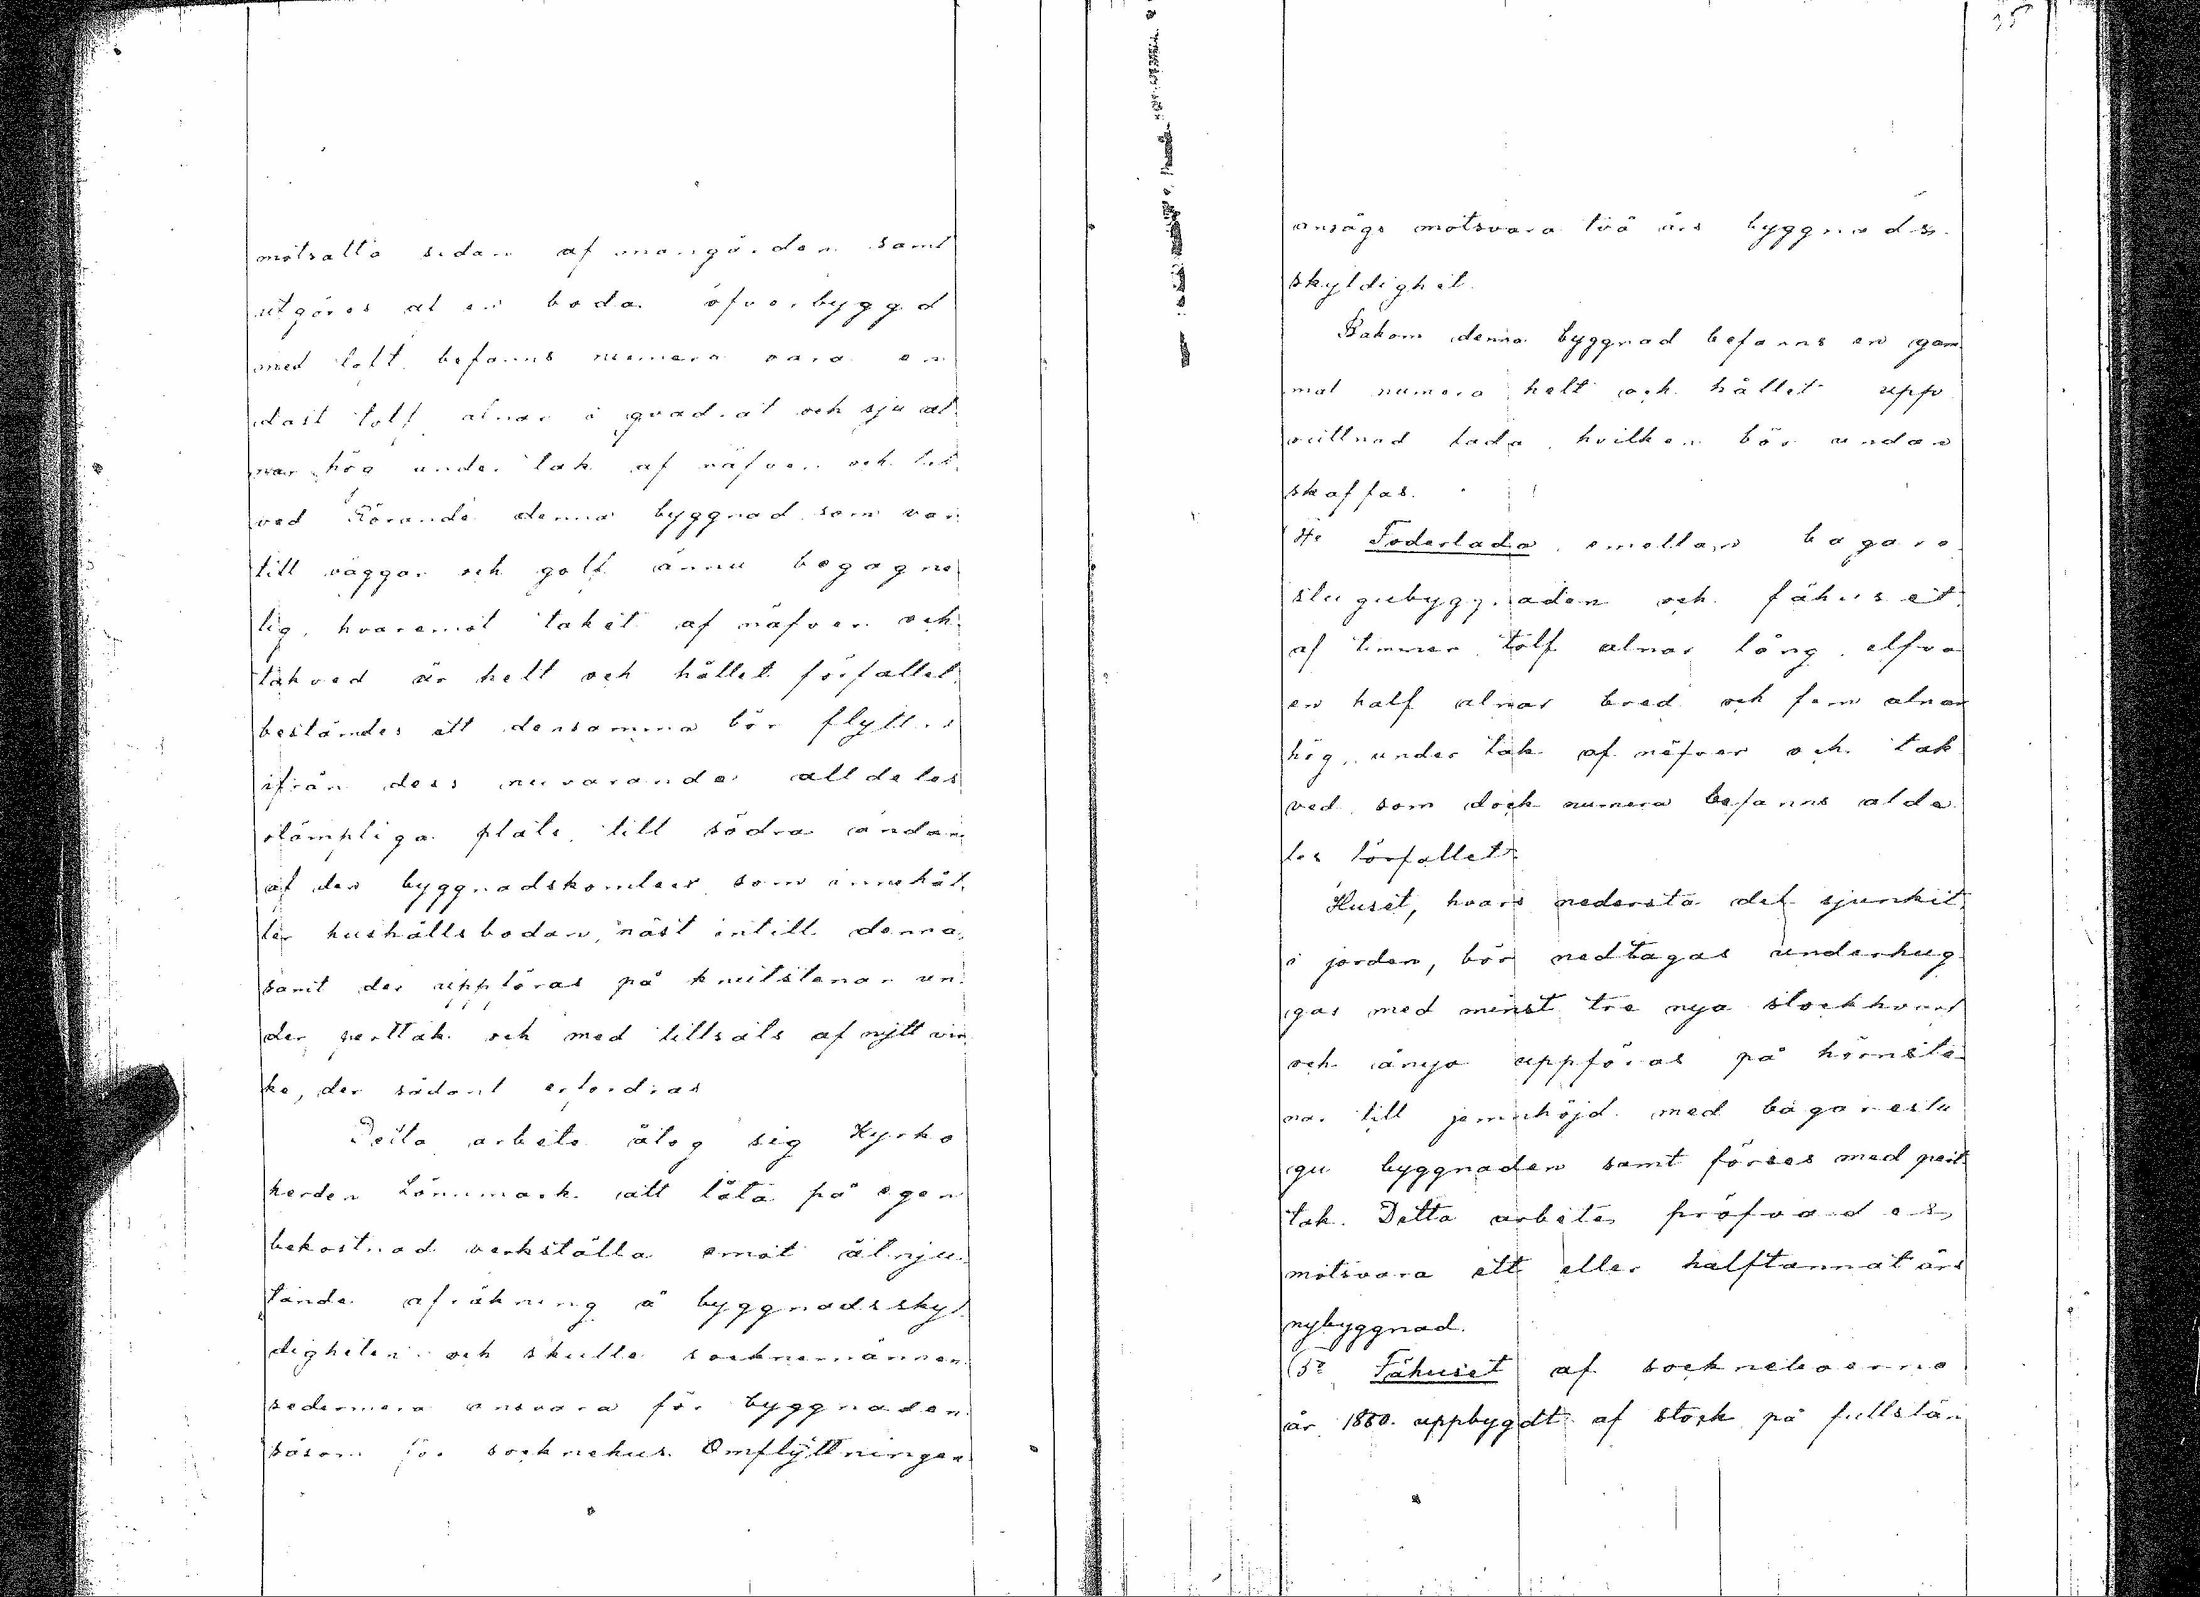 motsatta sidan af mangården samt
utgöres af en boda öfverbyggd
med loft befanns numera vara en
dast tolf alnar i qvadrat och sju al
nar hög under tak af näfver och tak
ved Rörande denna byggnad som var
till väggar och golf ännu begagne
lig, hvaremot taket af näfver och
takved är helt och hållet förfallet
bestämdes att densamma bör flyttas
ifrån dess nuvarande alldeles
olämpliga plats till södra ändan
af den byggnadskomlex som innehål
ler hushållsbodan, näst intill denna,
samt der uppföras på knutstenar un
der perttak och med tillsats af nytt vir
ke, der sådant erfordras
Detta arbete åtog sig Kyrko
herden Lönnmark att låta på egen
bekostnad verkställa emot åtnju
tande afräkning å byggnadsskyl
digheten och skulle socknemännen
sedermera ansvara för byggnaden
såsom för socknehus. Omflyttningen
35
ansågs motsvara två års byggnads
skyldighet.
Bakom denna byggnad befanns en gam
mal numera helt och hållet uppr
uttnad lada hvilken bör undan
skaffas.
4e Foderlada emellan bagare
stugubyggnaden och fähuset
af timmer tolf alnar lång elfva
en half alnar bred och fem alnar
hög, under tak af näfver och tak
ved som dock numera befanns alde
les förfallet
Huset, hvars nedersta del sjunkit
i jorden, bör nedtagas underhug
gas med minst tre nya stockhvarf
och ånyo uppföras på hörnste
nar till jemnhöjd med bagarestu
gu byggnaden samt förses med pert
tak. Detta arbete pröfvades
motsvara ett eller halftannat års
nybyggnad.
(5e Fähuset af sockneboerna
år 1880. uppbygdt af stock på fullstän